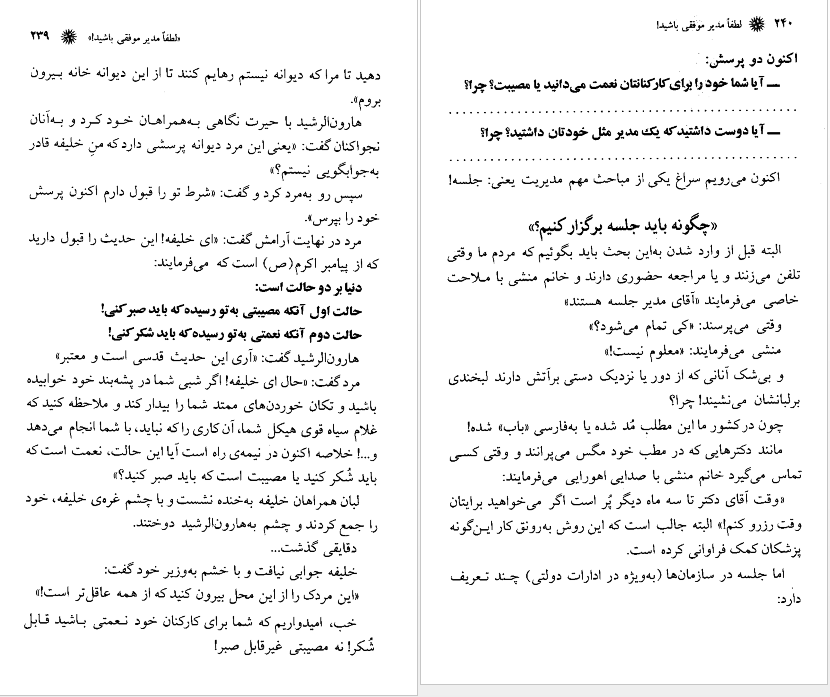 «لطفاً مدیر موفقی باشید!» ۲۳۹
دهید تا مرا که دیوانه نیستم رهایم کنند تا از این دیوانه خانه بیرون
بروم».
هارون‌الرشید با حیرت نگاهی به‌همراهان خود کرد و به‌آنان
نجواکنان گفت: «یعنی این مرد دیوانه پرسشی دارد که منِ خلیفه قادر
به‌جوابگویی نیستم؟»
سپس رو به‌مرد کرد و گفت: «شرط تو را قبول دارم اکنون پرسش
خود را بپرس».
مرد در نهایت آرامش گفت: «ای خلیفه! این حدیث را قبول دارید
که از پیامبر اکرم(ص) است که می‌فرمایند:
دنیا بر دو حالت است:
حالت اول آنکه مصیبتی به‌تو رسیده که باید صبر کنی!
حالت دوم آنکه نعمتی به‌تو رسیده که باید شکر کنی!
هارون‌الرشید گفت: «آری این حدیث قدسی است و معتبر»
مرد گفت: «حال ای خلیفه! اگر شبی شما در پشه‌بند خود خوابیده
باشید و تکان خوردن‌های ممتد شما را بیدار کند و ملاحظه کنید که
غلام سیاه قوی هیکل شما، آن کاری را که نباید، با شما انجام می‌دهد
و...! خلاصه اکنون در نیمه‌ی راه است آیا این حالت، نعمت است که
باید شُکر کنید یا مصیبت است که باید صبر کنید؟»
لبان همراهان خلیفه به‌خنده نشست و با چشم غره‌ی خلیفه، خود
را جمع کردند و چشم به‌هارون‌الرشید دوختند.
دقایقی گذشت...
خلیفه جوابی نیافت و با خشم به‌وزیر خود گفت:
«این مردک را از این محل بیرون کنید که از همه عاقل‌تر است!»
خب، امیدواریم که شما برای کارکنان خود نعمتی باشید قابل
شُکر! نه مصیبتی غیرقابل صبر!
۲۴۰ لطفاً مدیر موفقی باشید!
اکنون دو پرسش:
ــ آیا شما خود را برای کارکنانتان نعمت می‌دانید یا مصیبت؟ چرا؟
ــ آیا دوست داشتید که یک مدیر مثل خودتان داشتید؟ چرا؟
اکنون می‌رویم سراغ یکی از مباحث مهم مدیریت یعنی: جلسه!
«چگونه باید جلسه برگزار کنیم؟»
البته قبل از وارد شدن به‌این بحث باید بگوئیم که مردم ما وقتی
تلفن می‌زنند و یا مراجعه حضوری دارند و خانم منشی با مـلاحت
خاصی می‌فرمایند «آقای مدیر جلسه هستند»
وقتی می‌پرسند: «کی تمام می‌شود؟»
منشی می‌فرمایند: «معلوم نیست!»
و بی‌شک آنانی که از دور یا نزدیک دستی برآتش دارند لبخندی
برلبانشان می‌نشیند! چرا؟
چون در کشور ما این مطلب مُد شده یا به‌فارسی «باب» شده!
مانند دکترهایی که در مطب خود مگس می‌پرانند و وقتی کسی
تماس می‌گیرد خانم منشی با صدایی اهورایی می‌فرمایند:
«وقت آقای دکتر تا سه ماه دیگر پُر است اگر می‌خواهید برایتان
وقت رزرو کنم!» البته جالب است که این روش به‌رونق کار این‌گونه
پزشکان کمک فراوانی کرده است.
اما جلسه در سازمان‌ها (به‌ویژه در ادارات دولتی) چند تعریف
دارد: